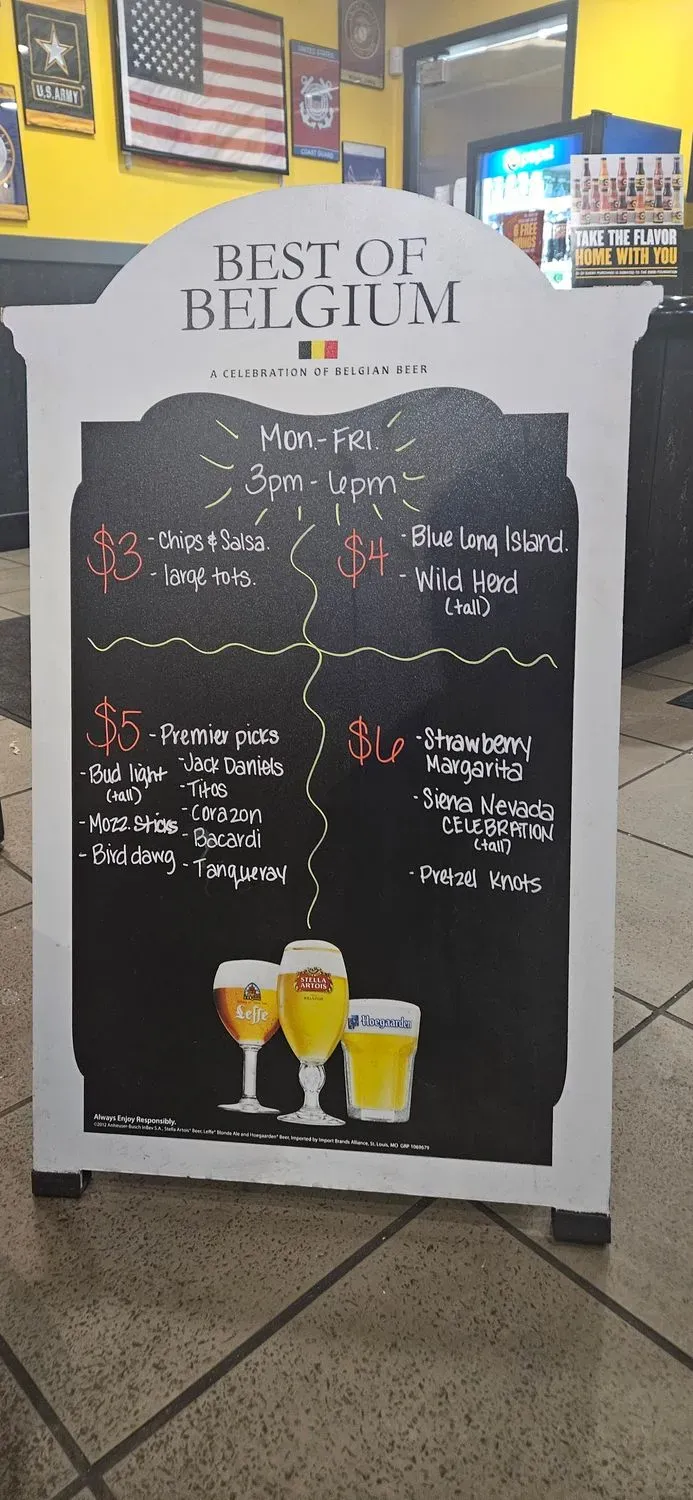 U.S. ARMY
UNITED STATES
COAST GUARD
pepsi
6 FREE
WINGS
TAKE THE FLAVOR
HOME WITH YOU
BEST OF
BELGIUM
A CELEBRATION OF BELGIAN BEER
Mon.-FRI.
3pm-6pm
$3 -Chips & Salsa.
- large tots.
$4 - Blue Long Island.
- Wild Herd
(tall)
$5 -Premier picks
-Jack Daniels
-Titos
-Corazon
-Bacardi
-Tanqueray
-Bud light
(tall)
-Mozz. Sticks
-Bird dawg
$6 -Strawberry
Margarita
-Sierra Nevada
CELEBRATION
(tall)
-Pretzel Knots
Leffe
STELLA
ARTOIS
Hoegaarden
Always Enjoy Responsibly.
©2012 Anheuser-Busch InBev S.A., Stella Artois® Beer, Leffe® Blonde Ale and Hoegaarden® Beer, Imported by Import Brands Alliance, St. Louis, MO GRP 1069679